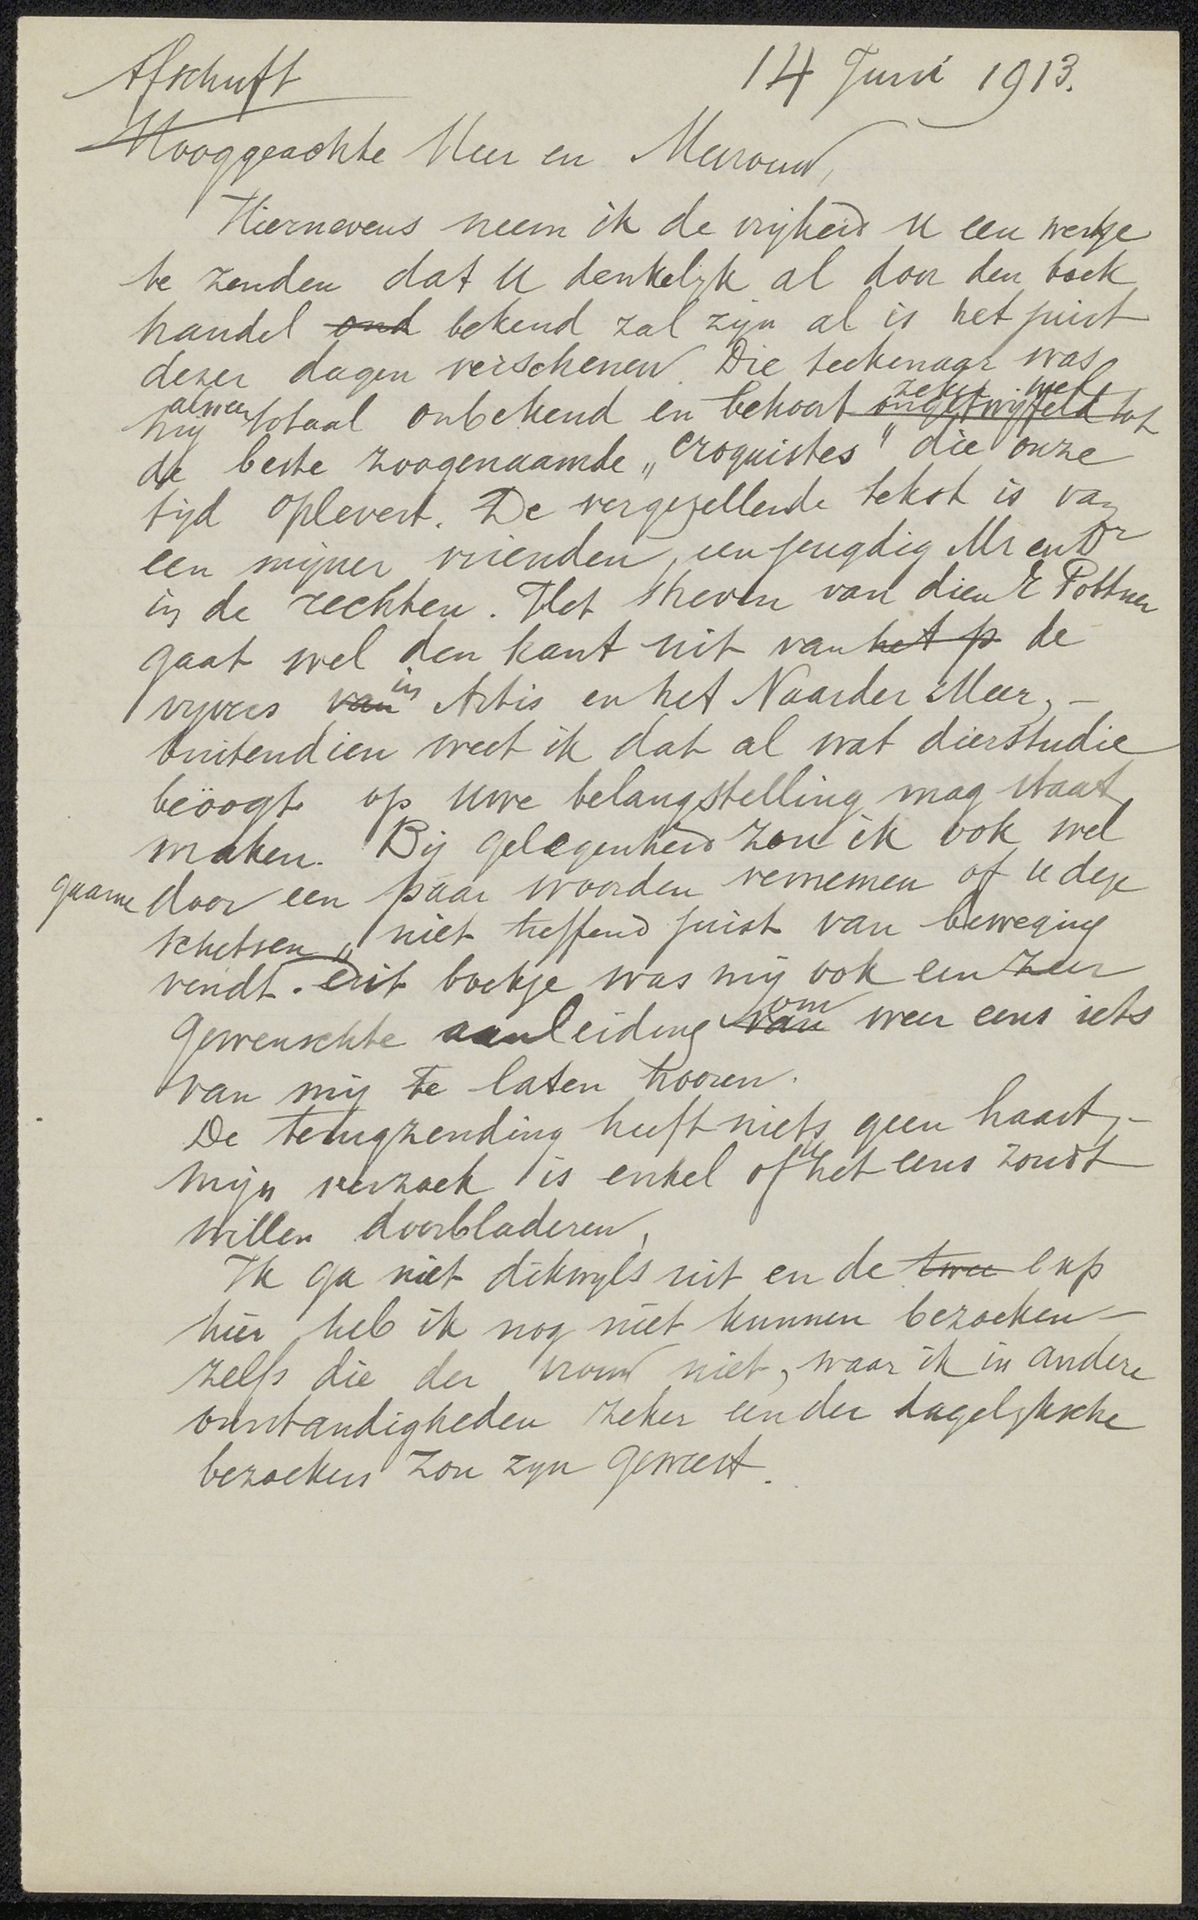 Afschrift 14 Juni 1913.
Hooggeachte Heer en Mevrouw,
Hiernevens neem ik de vrijheid U een werkje
te zenden dat U denkelijk al door den boek
handel ond bekend zal zijn al is het juist
dezer dagen verschenen. Die teekenaar was
alweer zeker wel
mij totaal onbekend en behoort ongetwijfeld tot
de beste zoogenaamde „croquistes" die onze
tijd oplevert. De vergezellende tekst is van
een mijner vrienden, een jeugdig Mr en Dr
in de rechten. Het streven van dien E Pottner
gaat wel den kant uit van het p de
vijvers van in Artis en het Naarder Meer, –
buitendien weet ik dat al wat dierstudie
beöogt op Uwe belangstelling mag staat
maken. Bij gelegenheid zou ik ook wel
gaarne door een paar woorden vernemen of U deze
schetsen „niet treffend juist van beweging
vindt. Dit boekje was mij ook een zeer
gewenschte aanleiding van om weer eens iets
van mij te laten hooren.
De terugzending heeft niets geen haast, –
mijn verzoek is enkel of U het eens zoudt
willen doorbladeren,
Ik ga niet dikwijls uit en de twee exp
hier heb ik nog niet kunnen bezoeken –
zelfs die der vrouw niet, waar ik in andere
omstandigheden zeker een der dagelijksche
bezoekers zou zijn geweest.